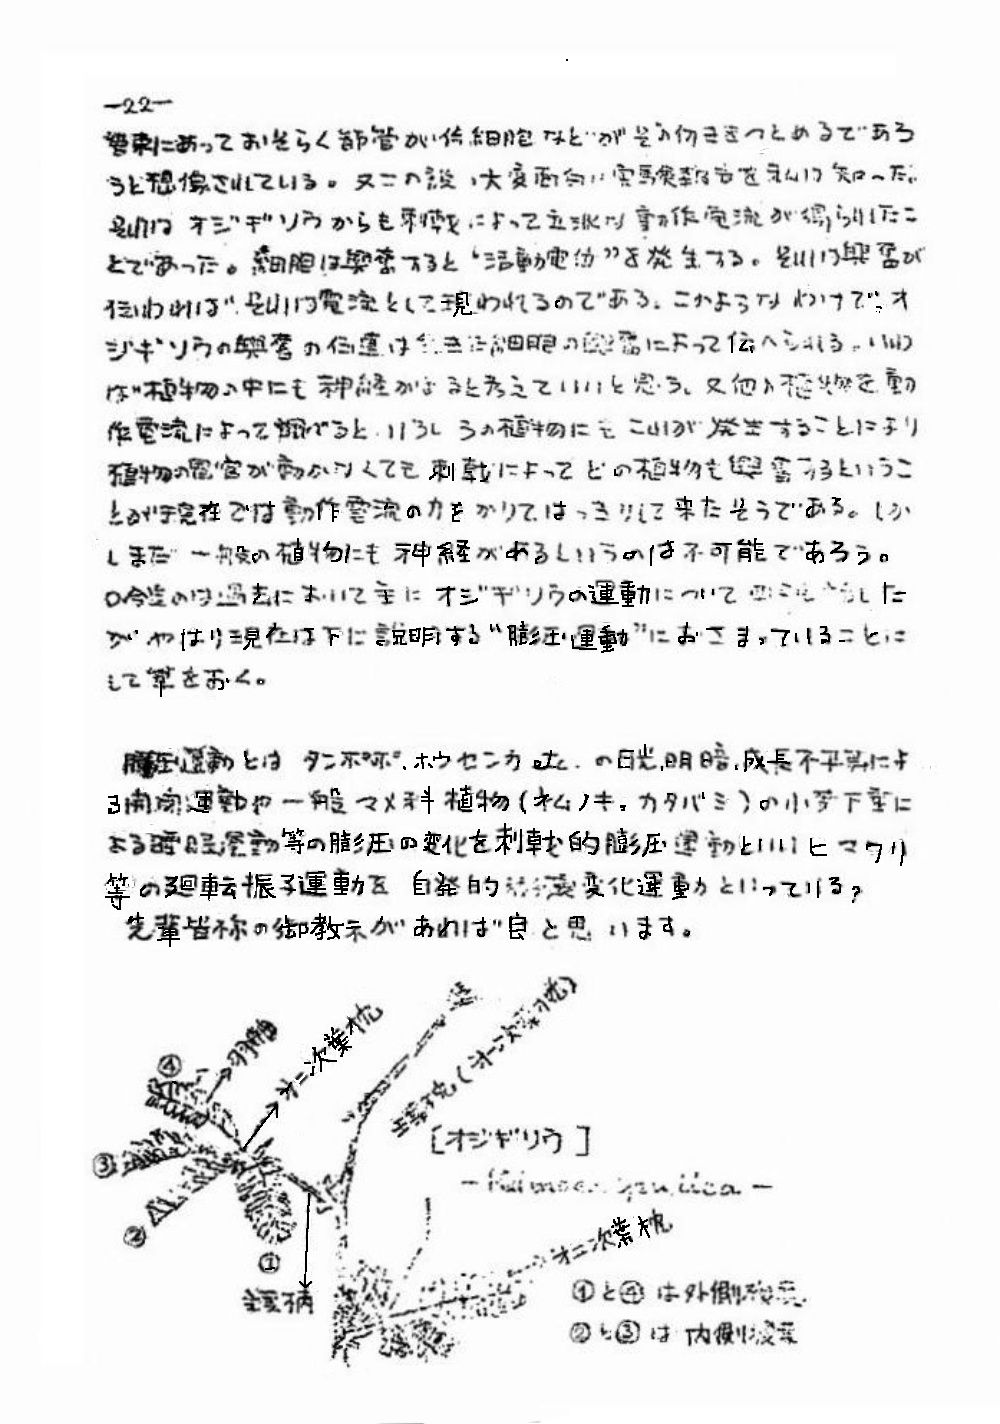 —22—
管束にあっておそらく節管が伝細胞などがその働きをつとめるであろ
うと想像されている。又この説、大変面白い実験報告を私は知った。
それは オジギソウからも刺戟によって立派な動作電流が得られたこ
とであった。細胞は興奮すると“活動電位”を発生する。それは興奮が
伝われば、それは電流として現われるのである。このようなわけで、オ
ジギソウの興奮の伝達は生きた細胞の興奮によって伝へられる。いわ
ば“植物の中にも神経があると考えていいと思う。又他の植物を動
作電流によって調べると、いろいろの植物にもこれが発生することにより
植物の器官が動かなくても刺戟によってどの植物も興奮するというこ
とが現在では動作電流の力をかりてはっきりして来たそうである。しか
しまだ一般の植物にも神経があるというのは不可能であろう。
○今迄のは過去において主にオジギソウの運動について した
がやはり現在は下に説明する“膨圧運動”におさまっていることに
して筆をおく。
膨圧運動とは タンポポ、ホウセンカ etc. の日光、明暗、成長不平等によ
る開閉運動や一般マメ科植物(ネムノキ。カタバミ)の小葉下垂に
よる睡眠運動等の膨圧の変化を刺戟的膨圧運動といいヒマワリ
等の廻転振子運動を 自発的 変化運動といっている?
先輩皆様の御教示があれば良と思います。
④
羽軸
オ二次葉枕
葉枕(オ一次葉枕)
③
②
①
葉柄
[オジギソウ]
— Mimosa pudica —
オ二次葉枕
①と④は外側
②と③は内側